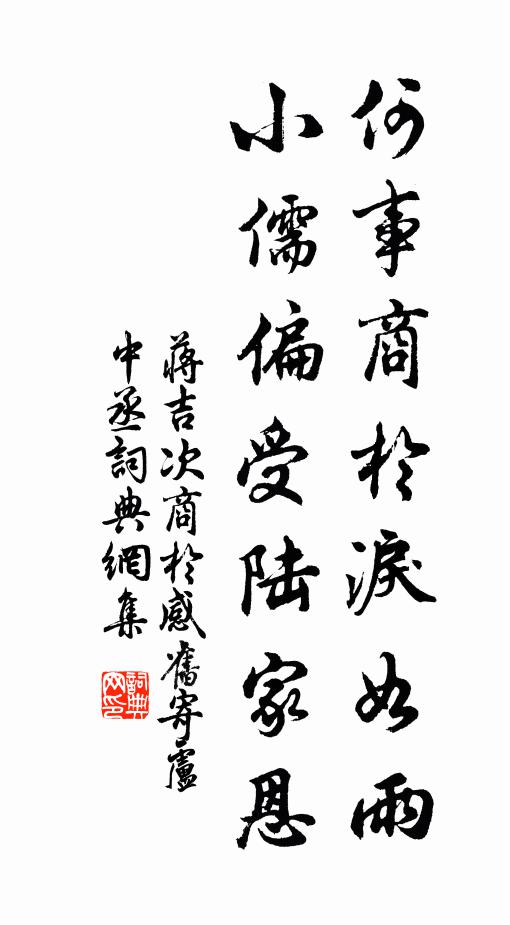 何事商於淚如雨
小儒偏受陆家恩
蔣吉次商於感舊寄盧
中丞詞典網集
詞典网印